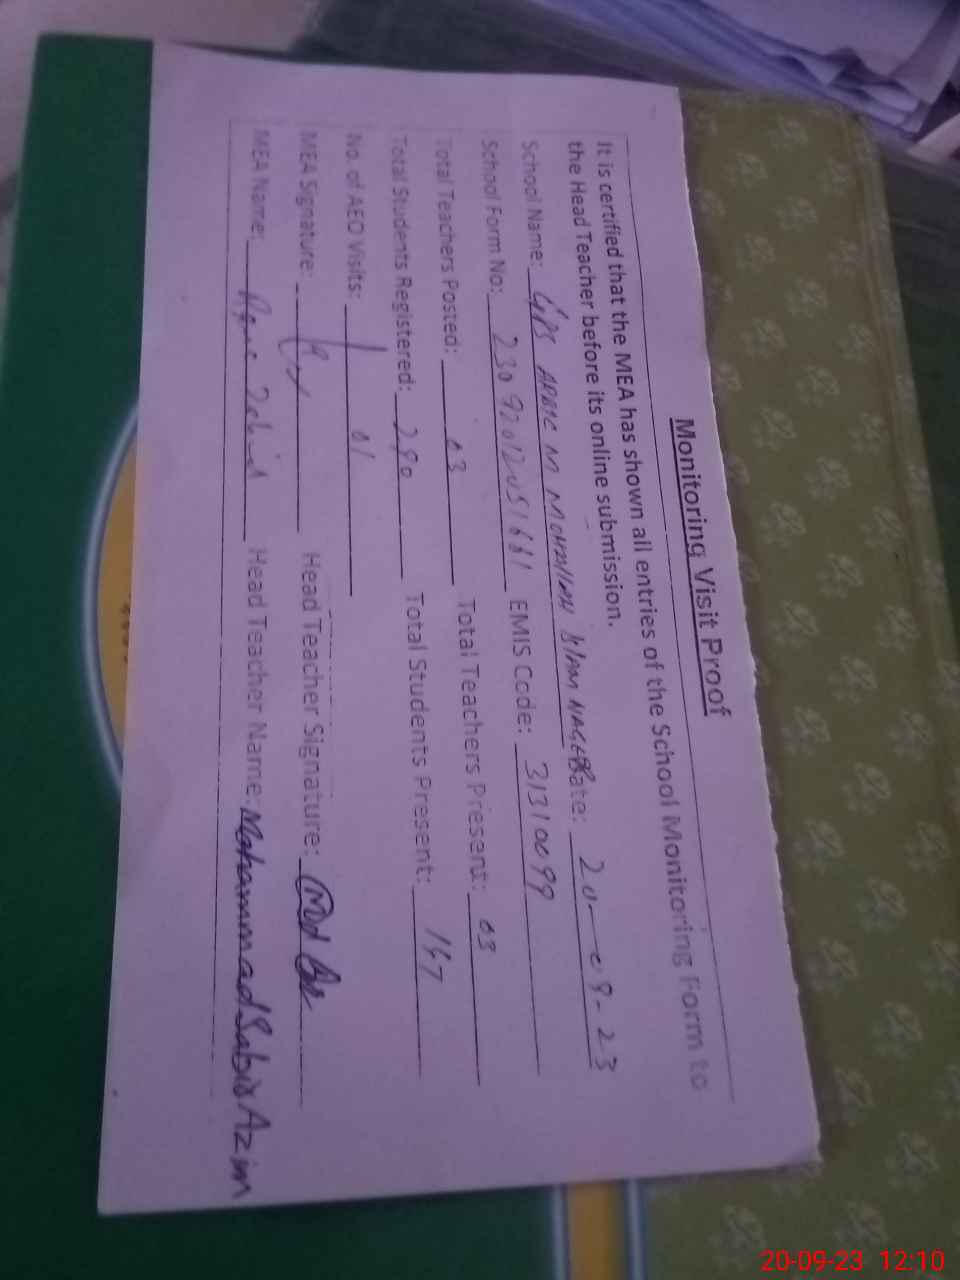 Monitoring Visit Proof
It is certified that the MEA has shown all entries of the School Monitoring Form to
the Head Teacher before its online submission.
School Name: GPS M MOHALLAH ISLAM NAGER Date: 20-09-23
School Form No: 230920120516661 EMIS Code: 31310099
Total Teachers Posted: 03 Total Teachers Present: 03
Total Students Registered: 290 Total Students Present: 167
No. of AEO Visits: 01
MEA Signature: Head Teacher Signature:
MEA Name: Head Teacher Name: Mohammad Sabir Azim
20-09-23 12:10